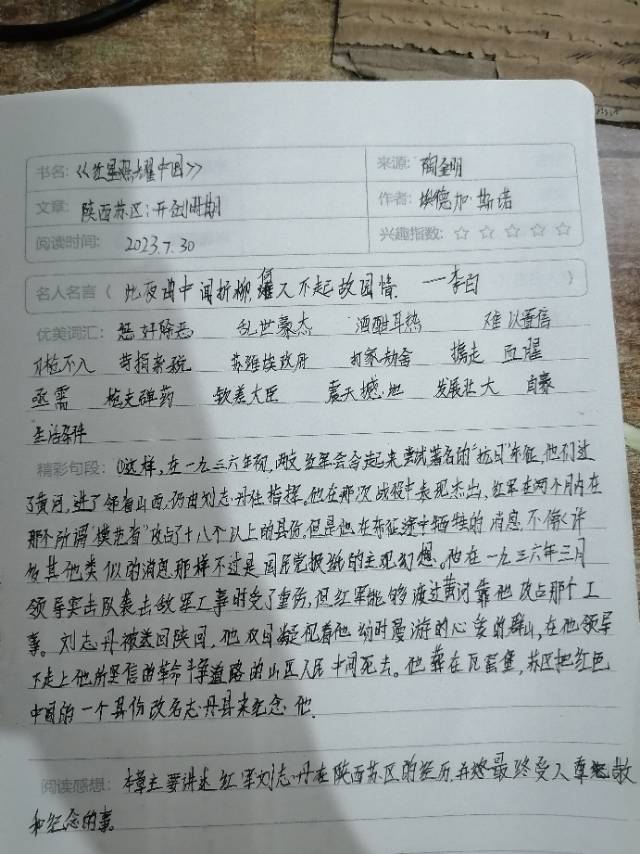 书名: 《红星照耀中国》 来源: 陶金明
文章: 陕西苏区:开创时期 作者: 埃德加·斯诺
阅读时间: 2023.7.30 兴趣指数: ☆ ☆ ☆ ☆ ☆
名人名言 ( 此夜曲中闻折柳, 何人不起故园情. 一李白 )
优美词汇: 惩奸除恶 乱世豪杰 酒酣耳热 难以置信
刀枪不入 苛捐杂税 苏维埃政府 打家劫舍 撬走 血腥
亟需 枪支弹药 钦差大臣 震天撼地 发展壮大 自豪
生活条件
精彩句段: ①这样,在一九三六年初,两支红军会合起来尝试著名的"抗日"东征,他们过
了黄河,进了邻省山西,仍由刘志丹任指挥。他在那次战役中表现杰出,红军在两个月内在
那个所谓"模范省"攻占了十八个以上的县份,但是他在东征途中牺牲的消息,不像许
多其他类似的消息那样不过是国民党报纸的主观幻想。他在一九三六年三月
领导突击队袭击敌军工事时受了重伤,但红军能够渡过黄河靠他攻占那个工
事。刘志丹被送回陕西,他双目凝视着他幼时漫游的心爱的群山,在他领导
下走上他所坚信的革命斗争道路的山区人民中间死去。他葬在瓦窑堡,苏区把红色
中国的一个县份改名志丹县来纪念他.
阅读感想: 本章主要讲述红军刘志丹在陕西苏区的经历,并最终受人尊敬
和纪念的事。